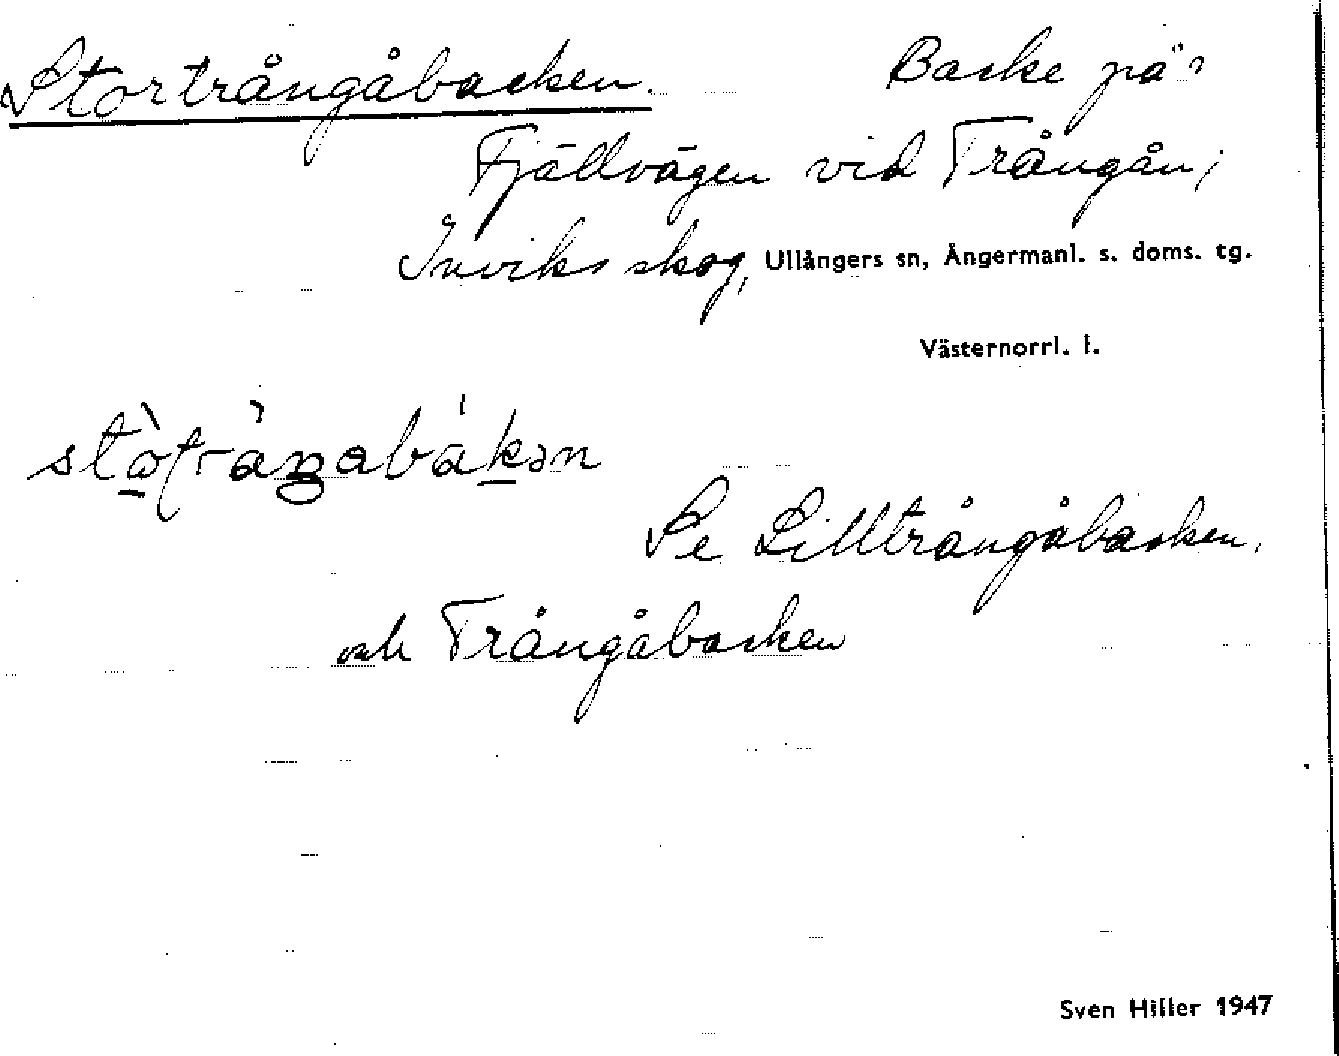 Stortrångåbacken. Backe på
Fjällvägen vid Trångån,
Inviks skog, Ullångers sn, Ångermanl. s. doms. tg.
Västernorrl. l.
Se Lilltrångåbacken.
och Trångåbacken
Sven Hiller 1947